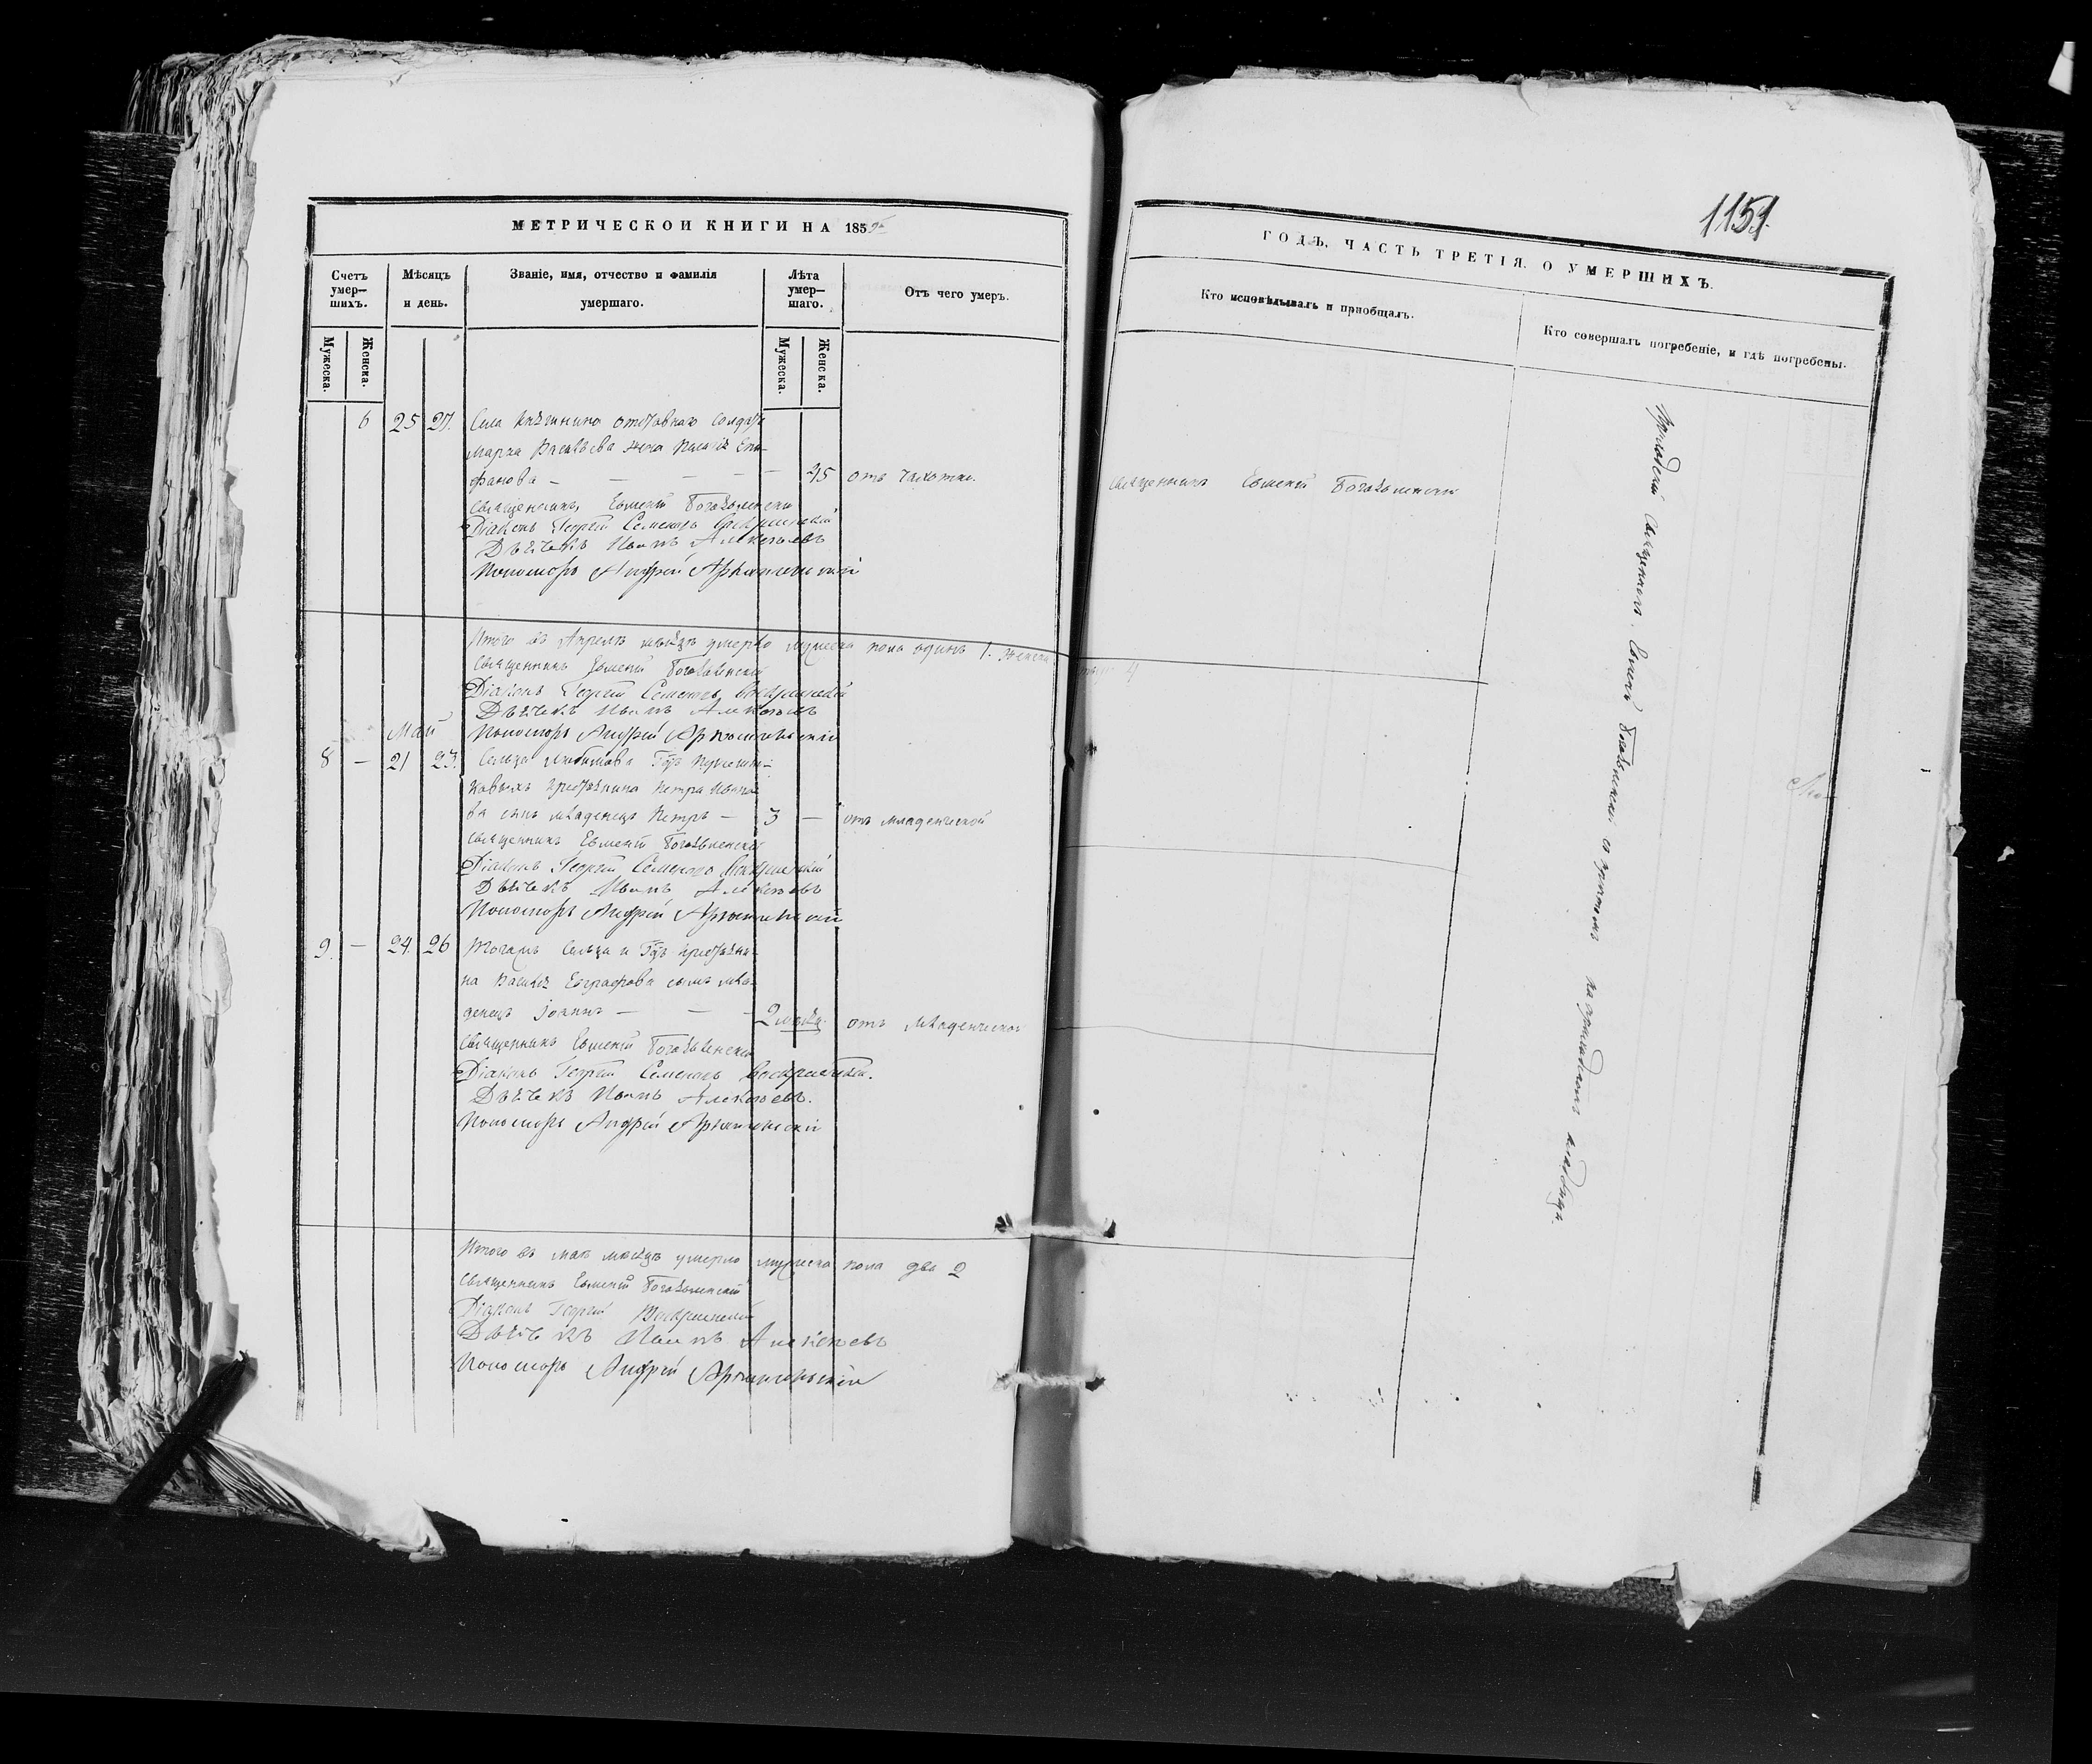 1151.
МЕТРИЧЕСКОЙ КНИГИ НА 185
Счетъ умер-шихъ.
Мѣсяцъ и день.
Званіе, имя, отчество и фамилія умершаго.
Лѣта умер-шаго.
Отъ чего умеръ.
Мужеска.
Женска.
Мужеска.
Женска.
6 25 27. Села отставнаго солдата
Марка жена
фанова — 45 отъ чахотки.
Священникъ Евменій Богоявленскій
Діаконъ Георгій Семеновъ Воскресенскій
Дьячекъ Иванъ Алексѣевъ
Пономорь Андрей Архангельскій
Итого въ Апрелѣ мѣсяцѣ умерло мужеска пола одинъ 1. женска 4
Священникъ Евменій Богоявленскій
Діаконъ Георгій Семеновъ Воскресенскій
Дьячекъ Иванъ Алексѣевъ
Май Пономорь Андрей Архангельскій
8 — 21 23. Сельца
крестьянина Петра Ивано-
ва сынъ младенецъ Петръ — 3 — отъ младенческой
Священникъ Евменій Богоявленскій
Діаконъ Георгій Семеновъ Воскресенскій
Дьячекъ Иванъ Алексѣевъ
Пономорь Андрей Архангельскій
9. — 24. 26 Тогожъ сельца и крестьяни-
на Василья Евграфова сынъ мла-
денецъ Іоаннъ — — — 2 мѣсяц. отъ младенческой
Священникъ Евменій Богоявленскій
Діаконъ Георгій Семеновъ Воскресенскій.
Дьячекъ Иванъ Алексѣевъ.
Пономорь Андрей Архангельскій
Итого въ маѣ мѣсяцѣ умерло мужеска пола два 2
Священникъ Евменій Богоявленскій
Діаконъ Георгій Воскресенскій
Дьячекъ Иванъ Алексѣевъ
Пономорь Андрей Архангельскій
ГОДЪ, ЧАСТЬ ТРЕТІЯ. О УМЕРШИХЪ.
Кто исповѣдывалъ и приобщалъ.
Кто совершалъ погребеніе, и гдѣ погребены.
Священникъ Евменій Богоявленскій
Приходскій священникъ Евменій Богоявленскій съ причтомъ на приходскомъ кладбищѣ.